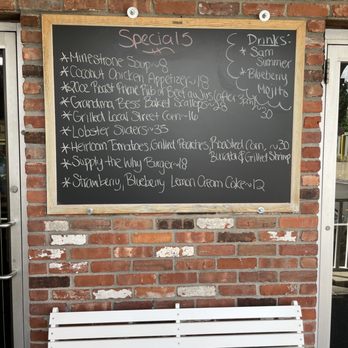 Specials
Drinks:
* Sam
Summer
* Blueberry
Mojito
* Minestrone Soup ~9
* Coconut Chicken Appetizer ~18
* 20oz Roast Prime Rib of Beef au Jus (after 5pm)
30
* Grandma Bess' Baked Scallops ~28
* Grilled Local Street Corn ~16
* Lobster Sliders ~35
* Heirloom Tomatoes, Grilled Peaches, Roasted Corn, ~30
Burrata & Grilled Shrimp
* Supply the Why Burger ~18
* Strawberry, Blueberry Lemon Cream Cake ~12